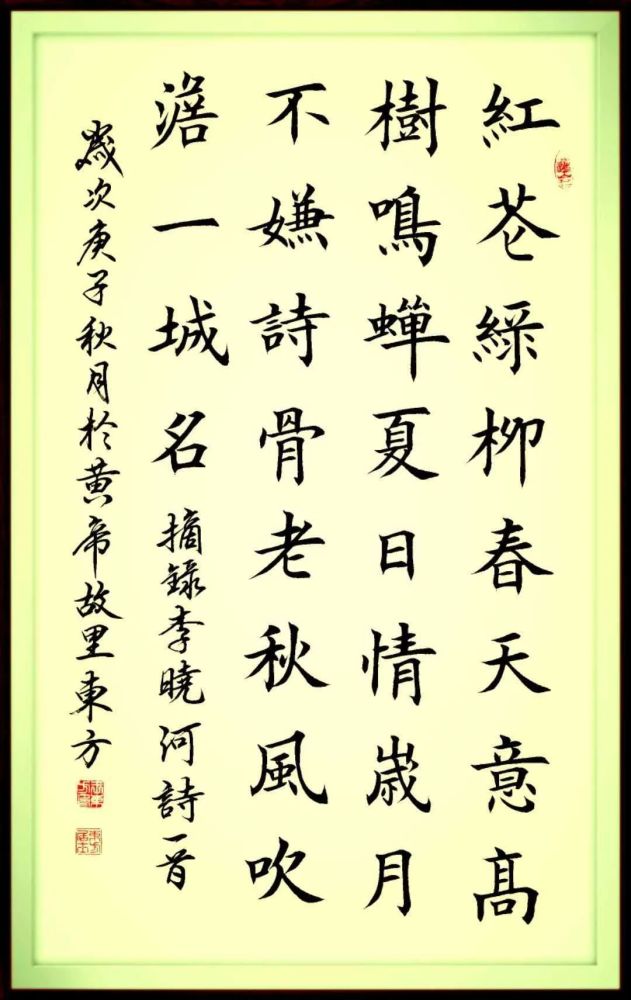 紅花綠柳春天意髙
樹鳴蟬夏日情歲月
不嫌詩骨老秋風吹
落一城名 摘録李曉河詩一首
歲次庚子秋月於黄帝故里東方